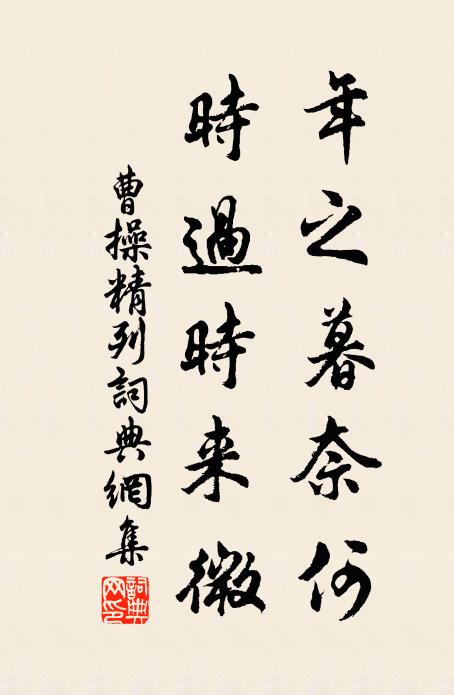 年之暮奈何
時過時来微
曹操精列詞典網集
詞典网印